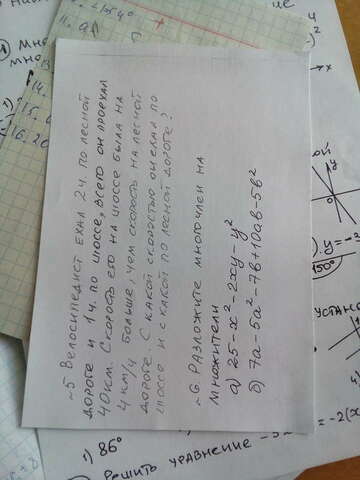 ~5 Велосипедист ехал 2ч по лесной
дороге и 1ч. по шоссе, всего он проехал
40км. Скорость его на шоссе была на
4 км/ч больше, чем скорость на лесной
дороге. С какой скоростью он ехал по
шоссе и с какой по лесной дороге?
~6. Разложите многочлен на
множители
а) 25-x²-2xy-y²
б) 7a-5a²-7b+10ab-5b²
86°
Решить уравнение